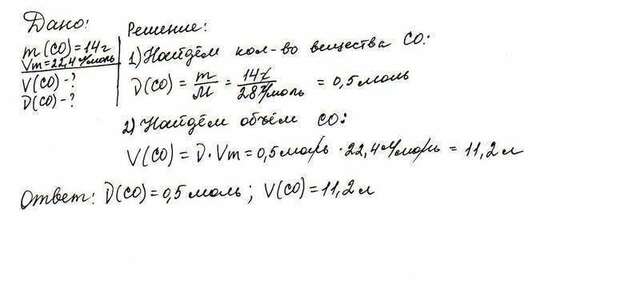 Дано:
m(CO)=14г
Vm=22,4 л/моль
V(CO)-?
D(CO)-?
Решение:
1) Найдём кол-во вещества CO:
D(CO) = m/M = 14г/28г/моль = 0,5 моль
2) Найдём объём CO:
V(CO) = D·Vm = 0,5 моль · 22,4 л/моль = 11,2 л
Ответ: D(CO)=0,5 моль; V(CO)=11,2 л